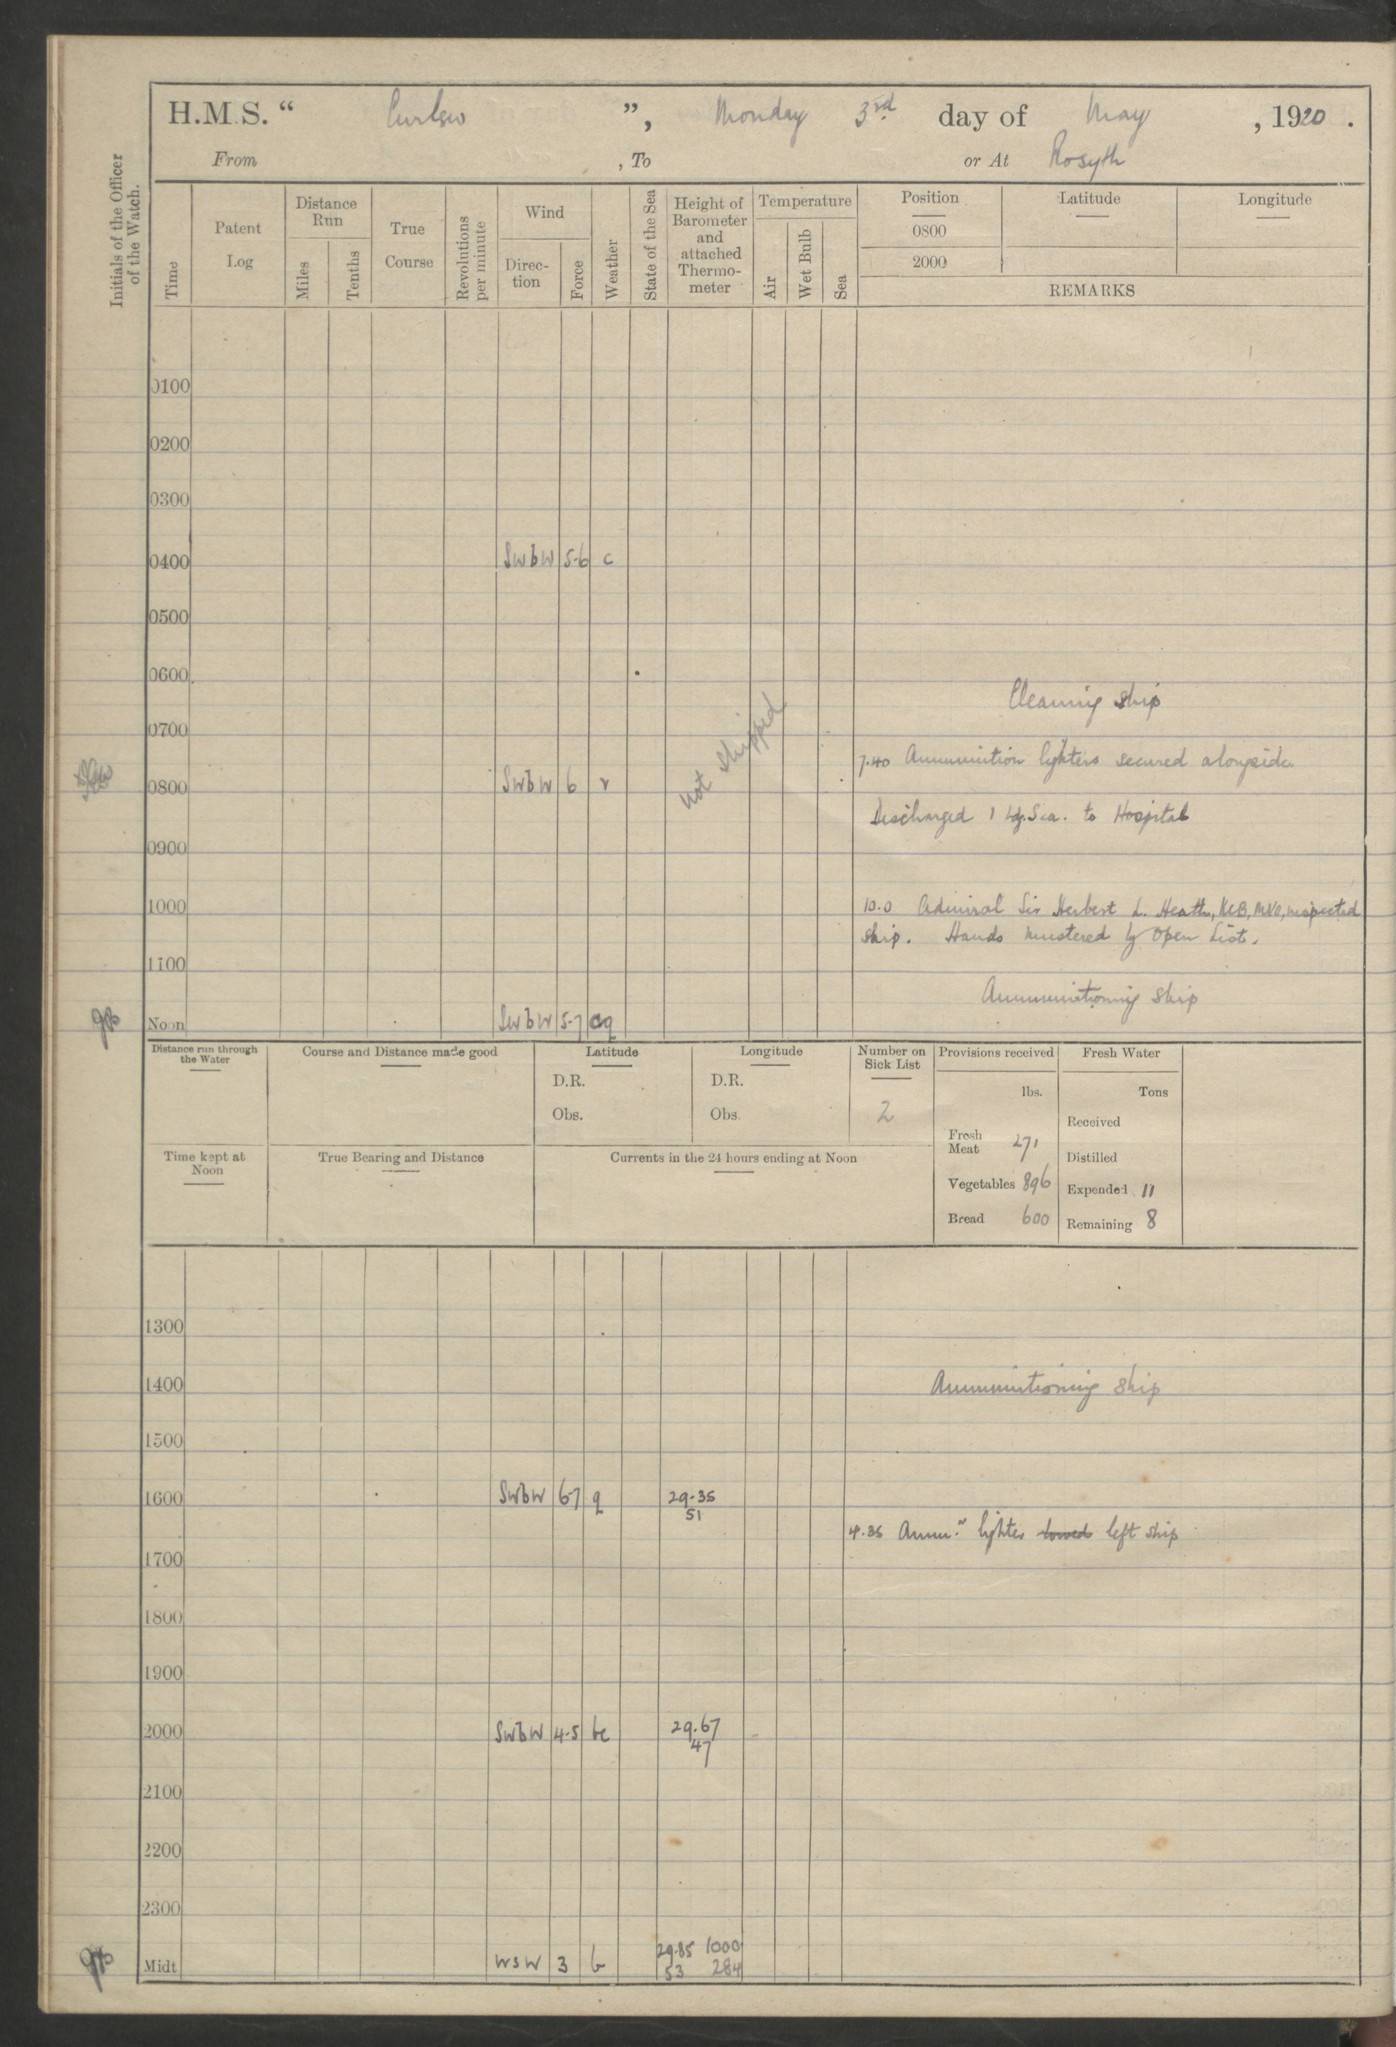 H.M.S. “ Curlew ”, Monday 3rd day of May, 1920.
From , To or At Rosyth
Initials of the Officer of the Watch.
Time
Patent Log
Distance Run
Miles
Tenths
True Course
Revolutions per minute
Wind
Direction
Force
Weather
State of the Sea
Height of Barometer and attached Thermometer
Temperature
Air
Wet Bulb
Sea
Position
0800
2000
Latitude
Longitude
REMARKS
0100
0200
0300
0400 SWbW 5-6 c
0500
0600
Cleaning ship
0700
not shipped
7.40 Ammunition lighters secured alongside
0800 SWbW 6 r
Discharged 1 Ldg. Sea. to Hospital
0900
1000
10.0 Admiral Sir Herbert L. Heath, KCB, MVO, inspected
ship. Hands mustered by Open List.
1100
Ammunitioning ship
Noon SWbW 5-7 cq
Distance run through the Water
Course and Distance made good
Latitude
D.R.
Obs.
Longitude
D.R.
Obs.
Number on Sick List
2
Provisions received
lbs.
Fresh Meat 271
Vegetables 896
Bread 600
Fresh Water
Tons
Received
Distilled
Expended 11
Remaining 8
Time kept at Noon
True Bearing and Distance
Currents in the 24 hours ending at Noon
1300
1400
Ammunitioning ship
1500
1600 SWbW 6-7 q 29.35
51
4.35 Ammn. lighter towed left ship
1700
1800
1900
2000 SWbW 4-5 bc 29.67
47
2100
2200
2300
29.85 1000
Midt WSW 3 b 53 284